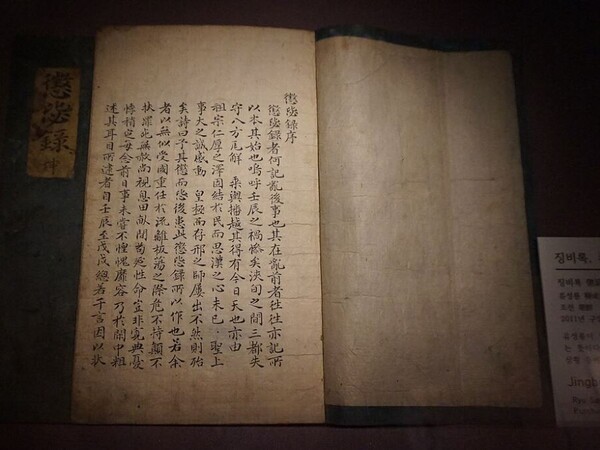 懲毖錄序
懲毖錄者何記亂後事也其在亂前者往往亦記所
以本其始也嗚呼壬辰之禍慘矣浹旬之間三都失
守八方瓦解 乘輿播越其得有今日天也亦由
祖宗仁厚之澤固結於民而思漢之心未已 聖上
事大之誠感動 皇極而存邢之師屢出不然則殆
矣詩曰予其懲而毖後患此懲毖錄所以作也若余
者以無似受國重任於流離板蕩之際危不持顚不
扶罪死無赦尙視息田畝間苟延性命豈非寬典憂
悸稍定每念前日事未嘗不惶愧靡容乃於閑中粗
述其耳目所逮者自壬辰至戊戌總若干言因以狀
懲毖錄
징비록,
징비록
Jingb